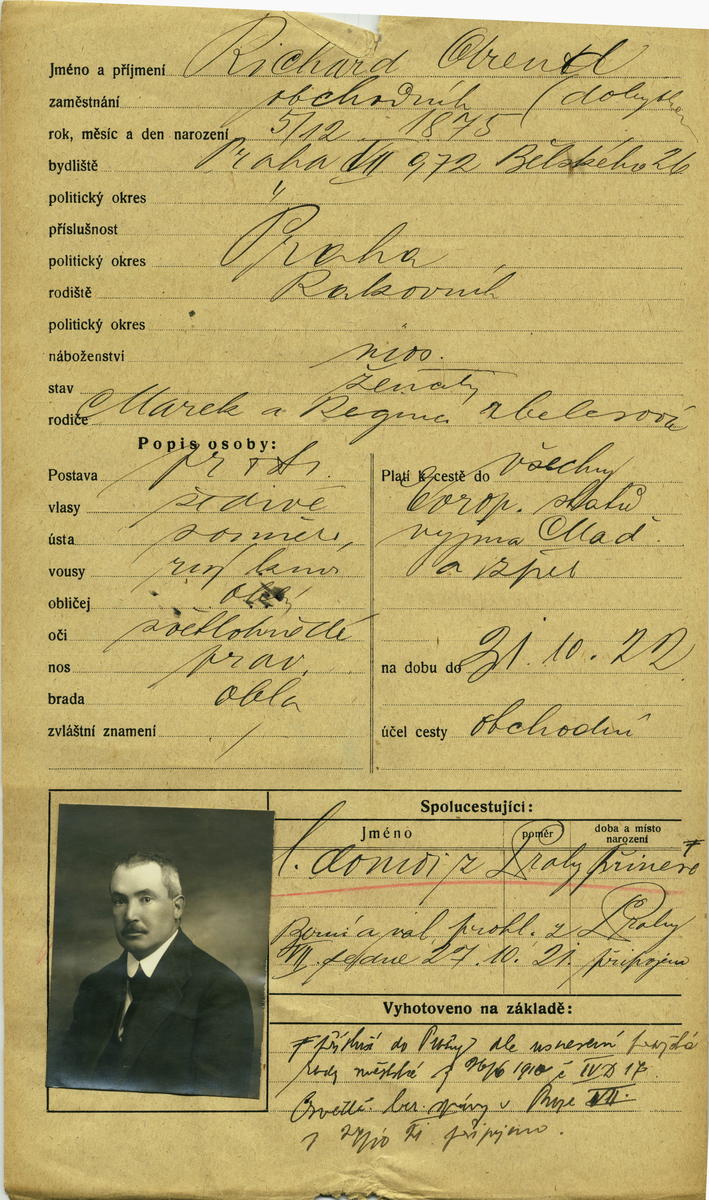 Jméno a příjmení Richard
zaměstnání obchodník
rok, měsíc a den narození 5/12 1875
bydliště Praha VII 972 Bělského 26
politický okres "
příslušnost
politický okres Praha
rodiště Rakovník
politický okres
náboženství mos.
stav ženatý
rodiče Marek a Regina
Popis osoby:
Postava
vlasy šedivé
ústa souměr.
vousy
obličej
oči světlohnědé
nos prav.
brada oblá
zvláštní znamení /
Platí k cestě do všechny
Evrop. států
vyjma Maď.
a zpět
na dobu do 31. 10. 22
účel cesty obchodní
Spolucestující:
Jméno poměr doba a místo narození
l. domov. z Prahy
Berní a vál. prohl. z Prahy
VII. ze dne 27. 10. 21. připojeno
Vyhotoveno na základě:
do Prahy dle usnesení
rady městské z 1910 č IVD 17
Osvědč. ber. správy v Praze VII.
z 27/10 21 připojeno.